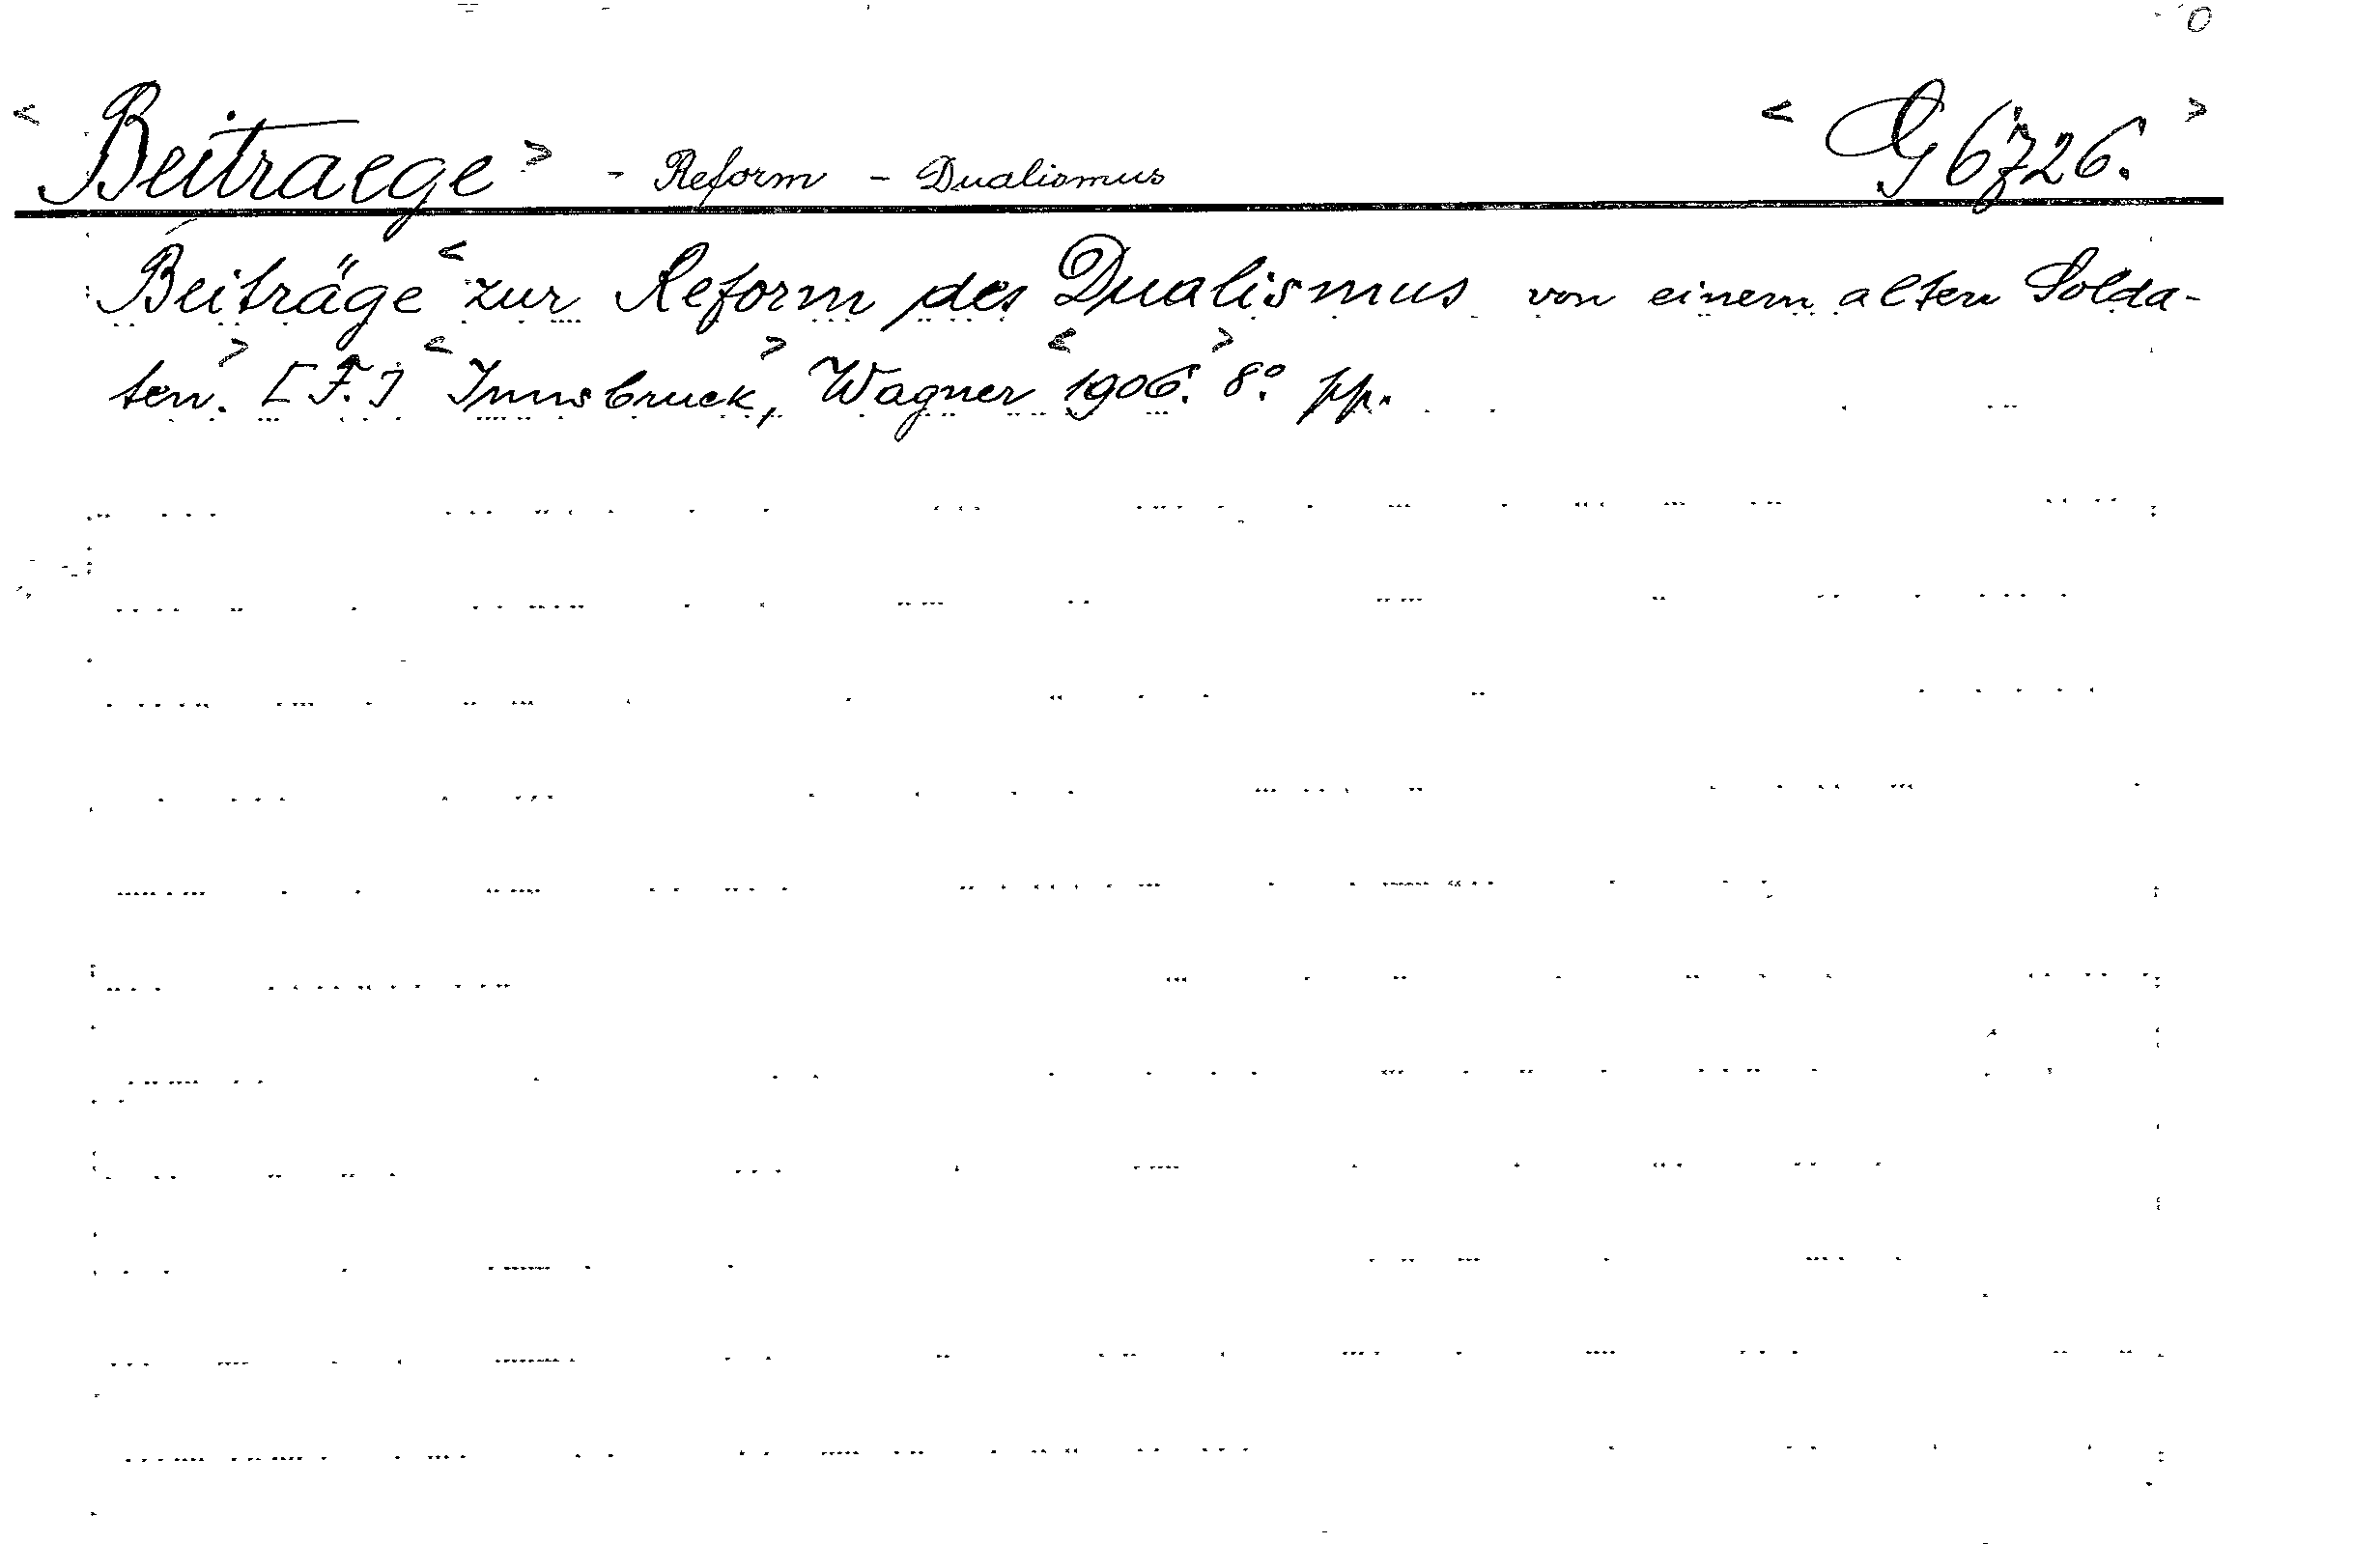 <Beitraege> - Reform - Dualismus <G 6726.>
Beiträge <zur Reform des Dualismus von einem alten Solda-
ten.> [F.] <Innsbruck,> Wagner <1906.> 8° pp.